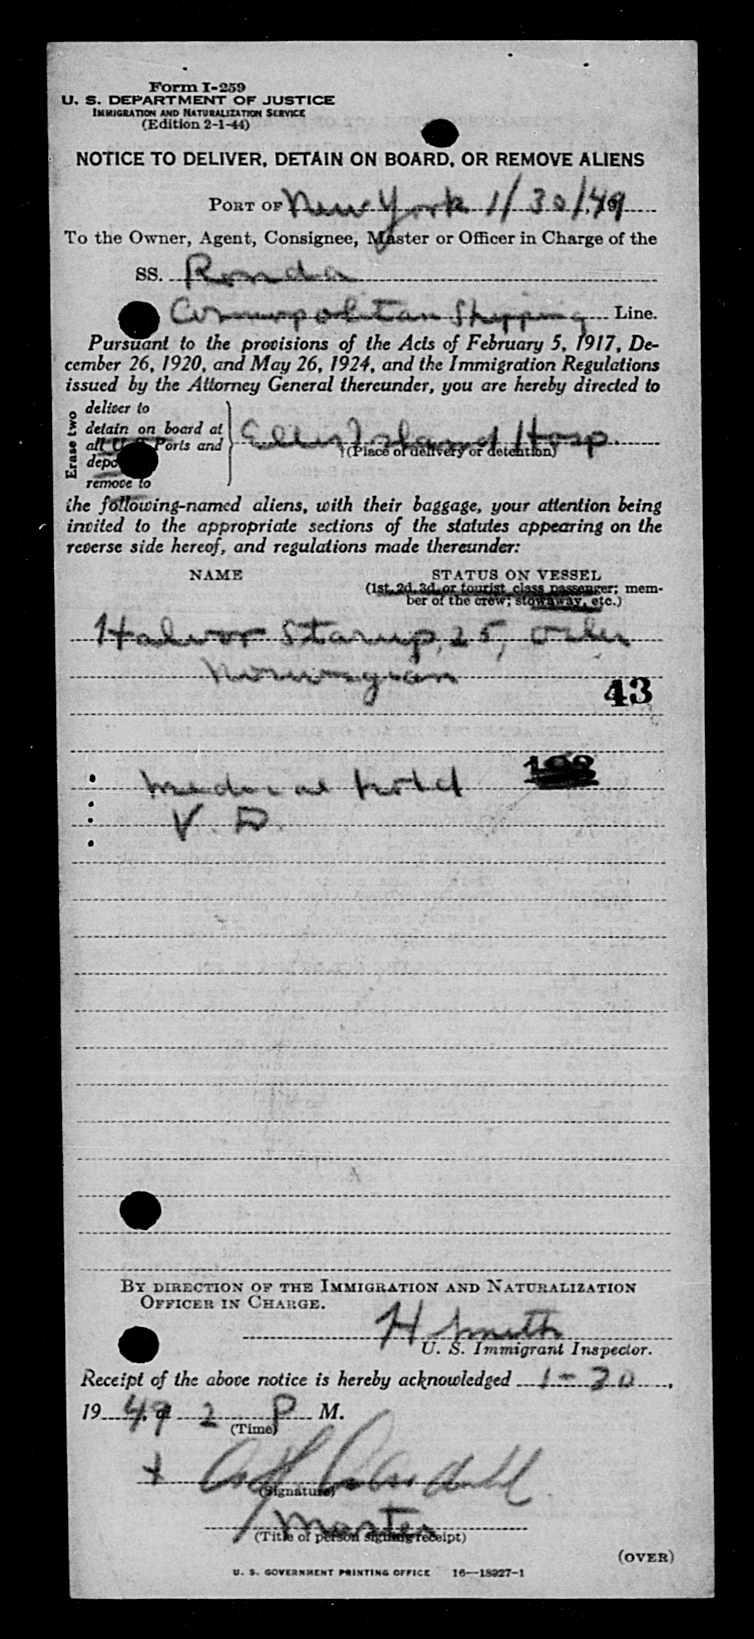 Form I-259
U. S. DEPARTMENT OF JUSTICE
IMMIGRATION AND NATURALIZATION SERVICE
(Edition 2-1-44)
NOTICE TO DELIVER, DETAIN ON BOARD, OR REMOVE ALIENS
PORT OF New York 1/30/49
To the Owner, Agent, Consignee, Master or Officer in Charge of the
SS. Ronda
Cosmopolitan Shipping Line.
Pursuant to the provisions of the Acts of February 5, 1917, De-
cember 26, 1920, and May 26, 1924, and the Immigration Regulations
issued by the Attorney General thereunder, you are hereby directed to
Erase two
deliver to
detain on board at
all U. S. Ports and
remove to
Ellis Island Hosp.
†(Place of delivery or detention)
the following-named aliens, with their baggage, your attention being
invited to the appropriate sections of the statutes appearing on the
reverse side hereof, and regulations made thereunder:
NAME STATUS ON VESSEL
(1st, 2d, 3d, or tourist class passenger; mem-
ber of the crew; stowaway, etc.)
Halvor Starup, 25, Oiler
Norwegian
43
Medical hold
V. D.
BY DIRECTION OF THE IMMIGRATION AND NATURALIZATION
OFFICER IN CHARGE.
H Smith
U. S. Immigrant Inspector.
Receipt of the above notice is hereby acknowledged 1-30,
1949, at 2 P M.
(Time)
(Signature)
Master
(Title of person signing receipt)
(OVER)
U. S. GOVERNMENT PRINTING OFFICE 16—18927-1